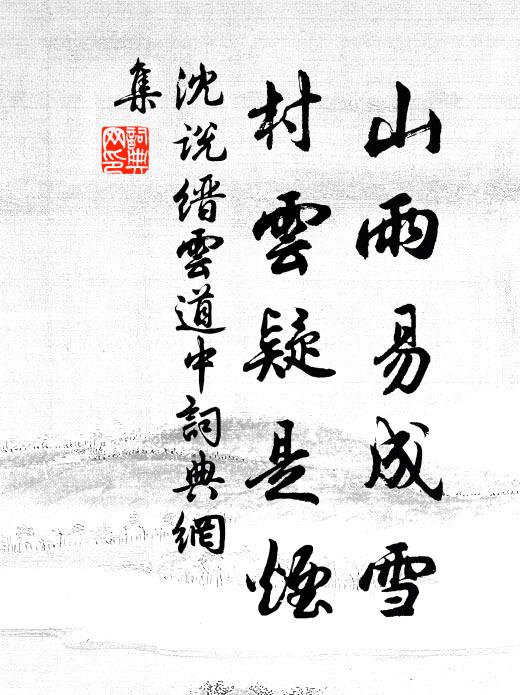 山雨易成雪
村雲疑是煙
沈說縉雲道中詞典網
集
詞典
网印